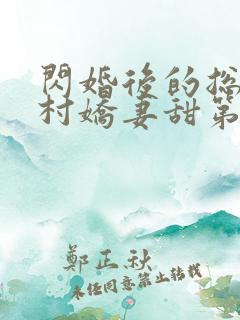 閃婚後的総
村嬌妻甜第
鄭正秋
未任同意第止轉載